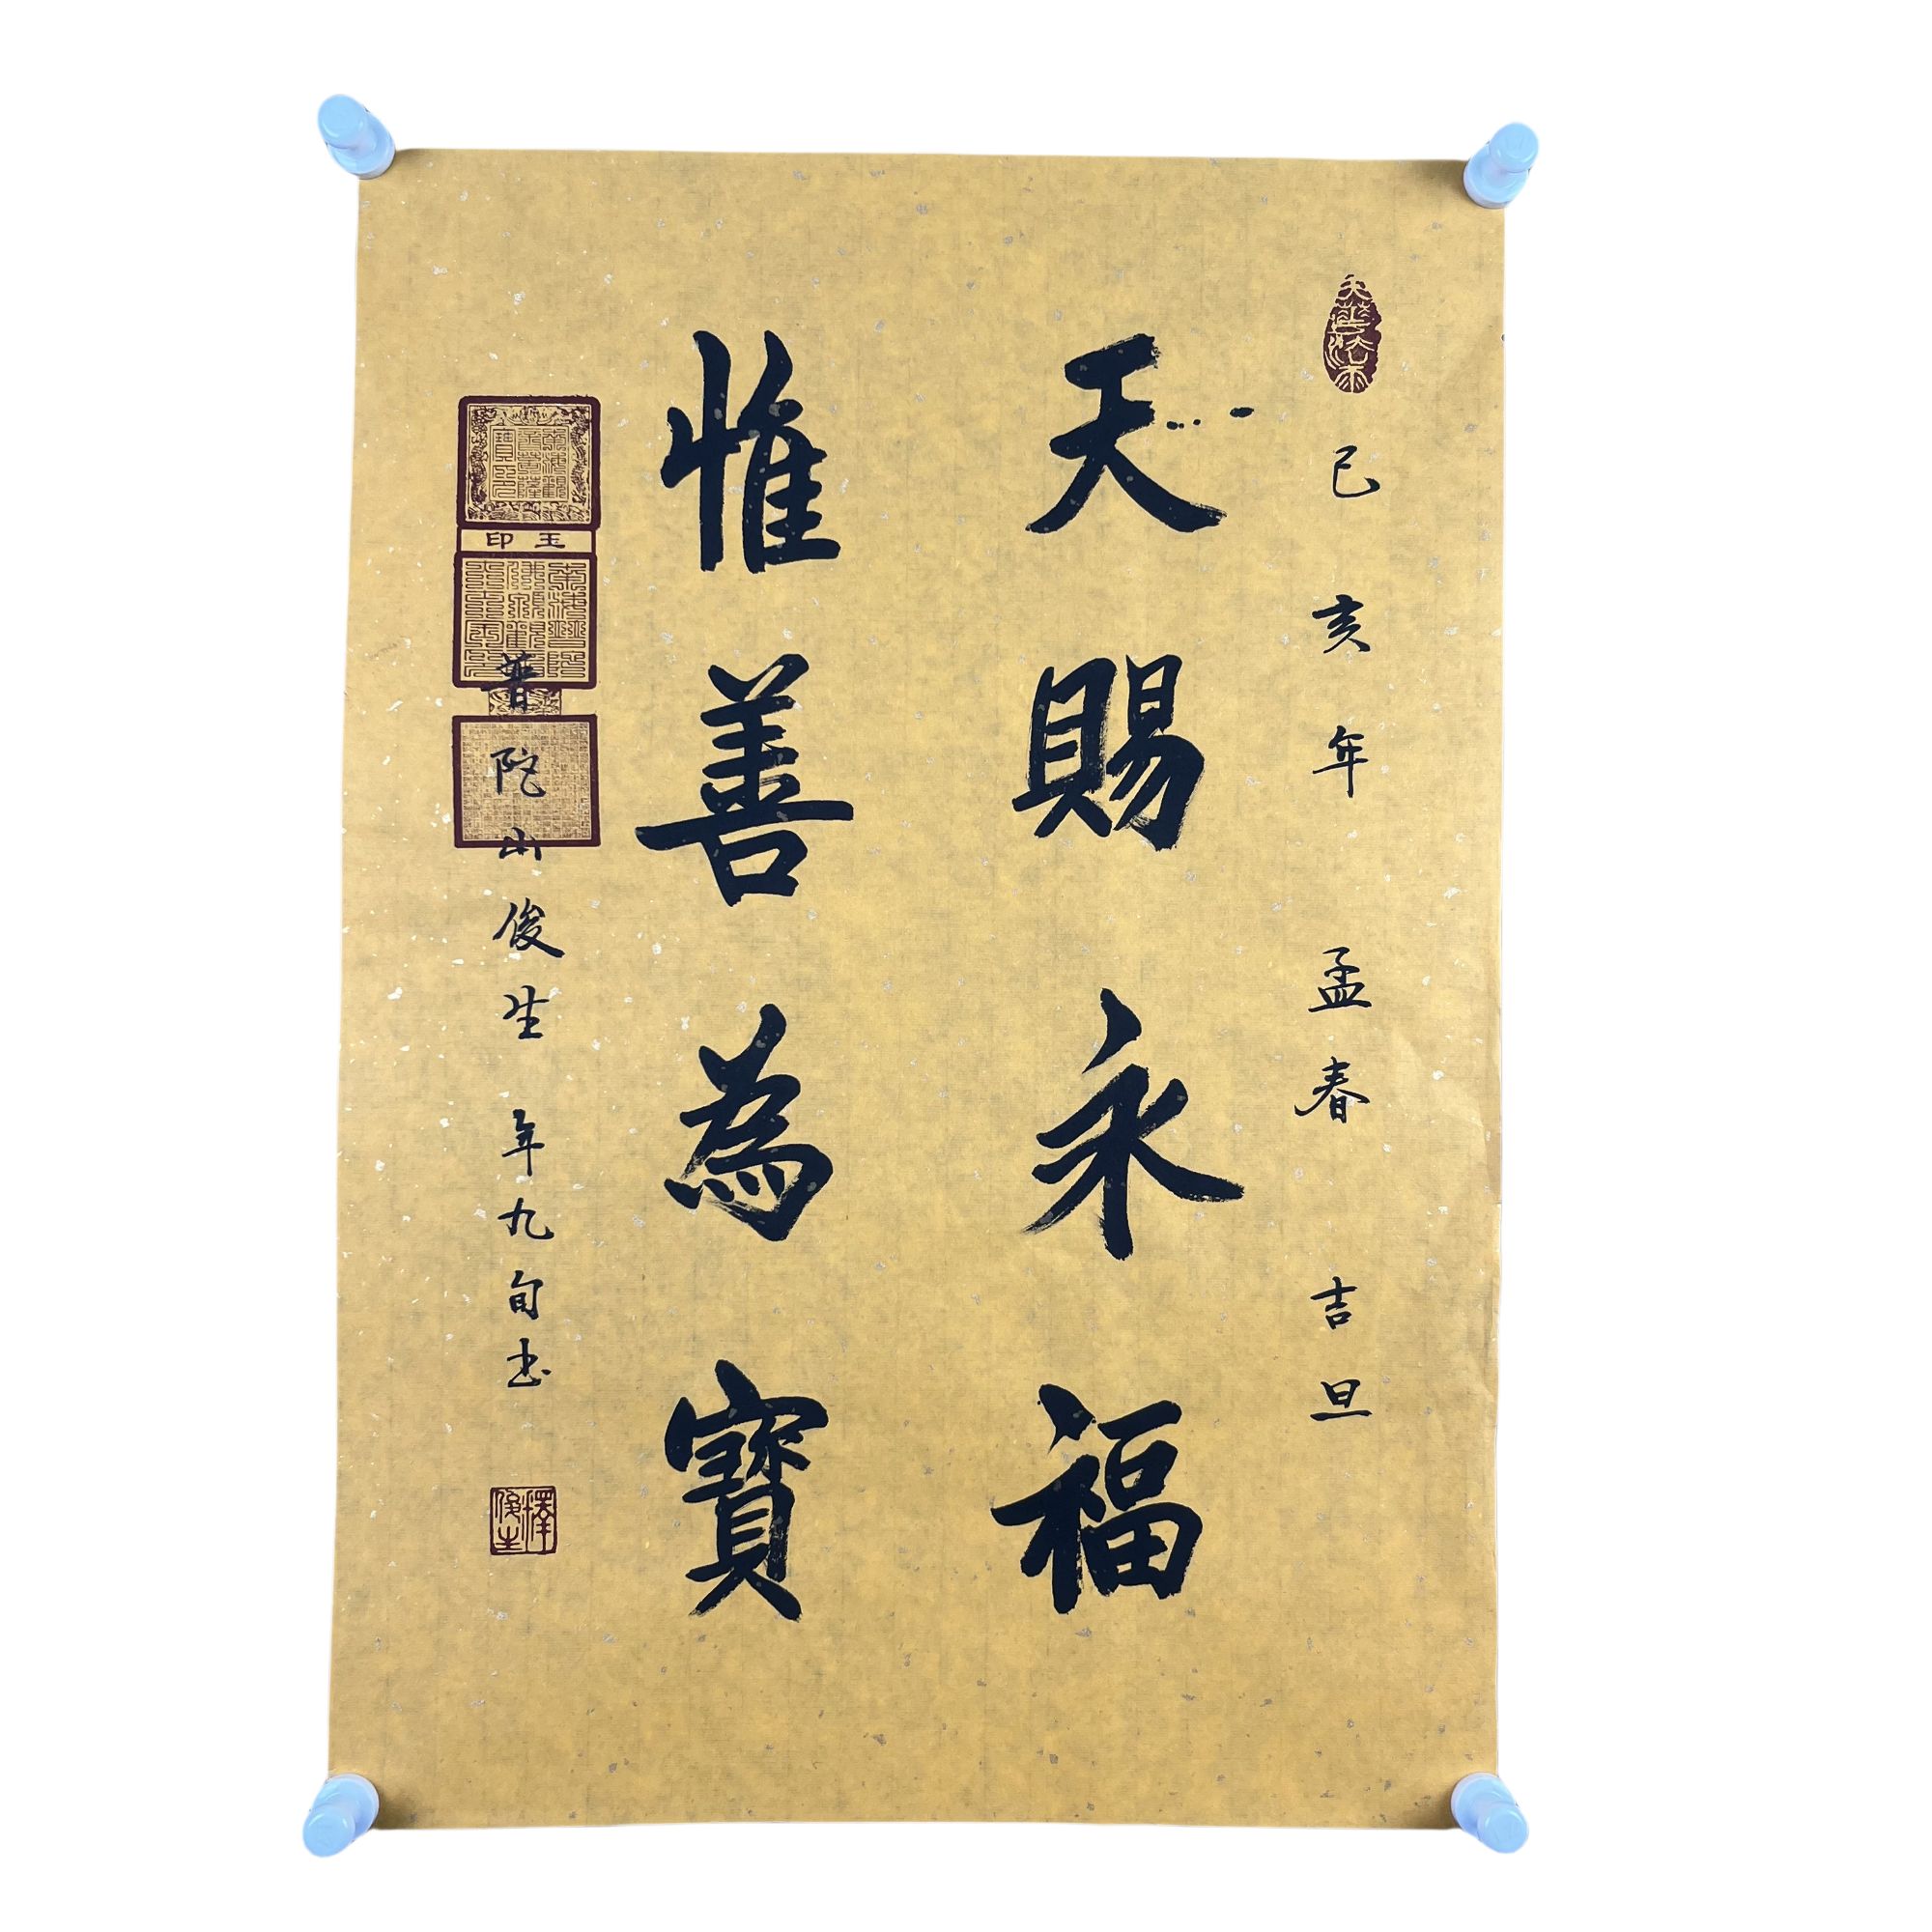 己亥年 孟春 吉旦
天賜永福
惟善為寶
普陀山俊生 年九旬书
玉印